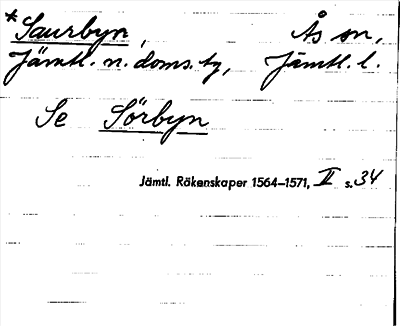 *Saurbyn, Ås sn,
Jämtl. n. doms. tg, Jämtl. l.
Se Sörbyn
Jämtl. Räkenskaper 1564–1571, II s. 34